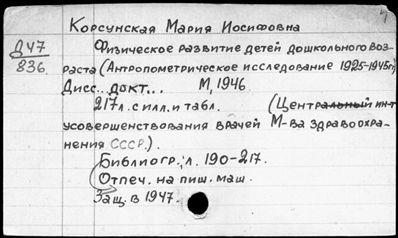 Корсунская Мария Иосифовна
Д47
836
Физическое развитие детей дошкольного воз-
раста (Антропометрическое исследование 1925-1945гг)
Дисс... докт... М, 1946.
217л. с илл. и табл. (Центральный инт
усовершенствования врачей М-ва здравоохра-
нения СССР.).
Библиогр.: л. 190-217.
(Отпеч. на пиш. маш.
Защ. в 1947.